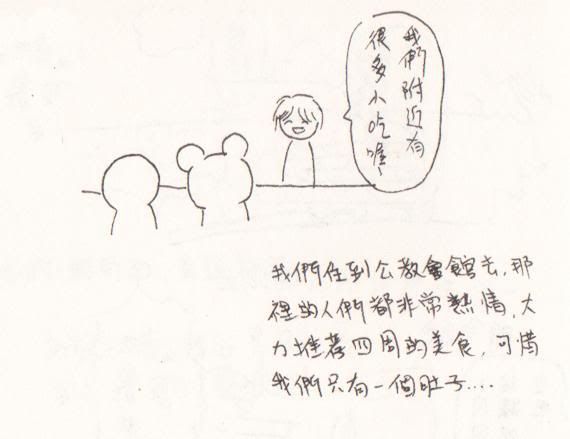 我們附近有
很多小吃喔、
我們住到公教會館去,那
裡的人們都非常熱情,大
力推荐四周的美食,可惜
我們只有一個肚子....